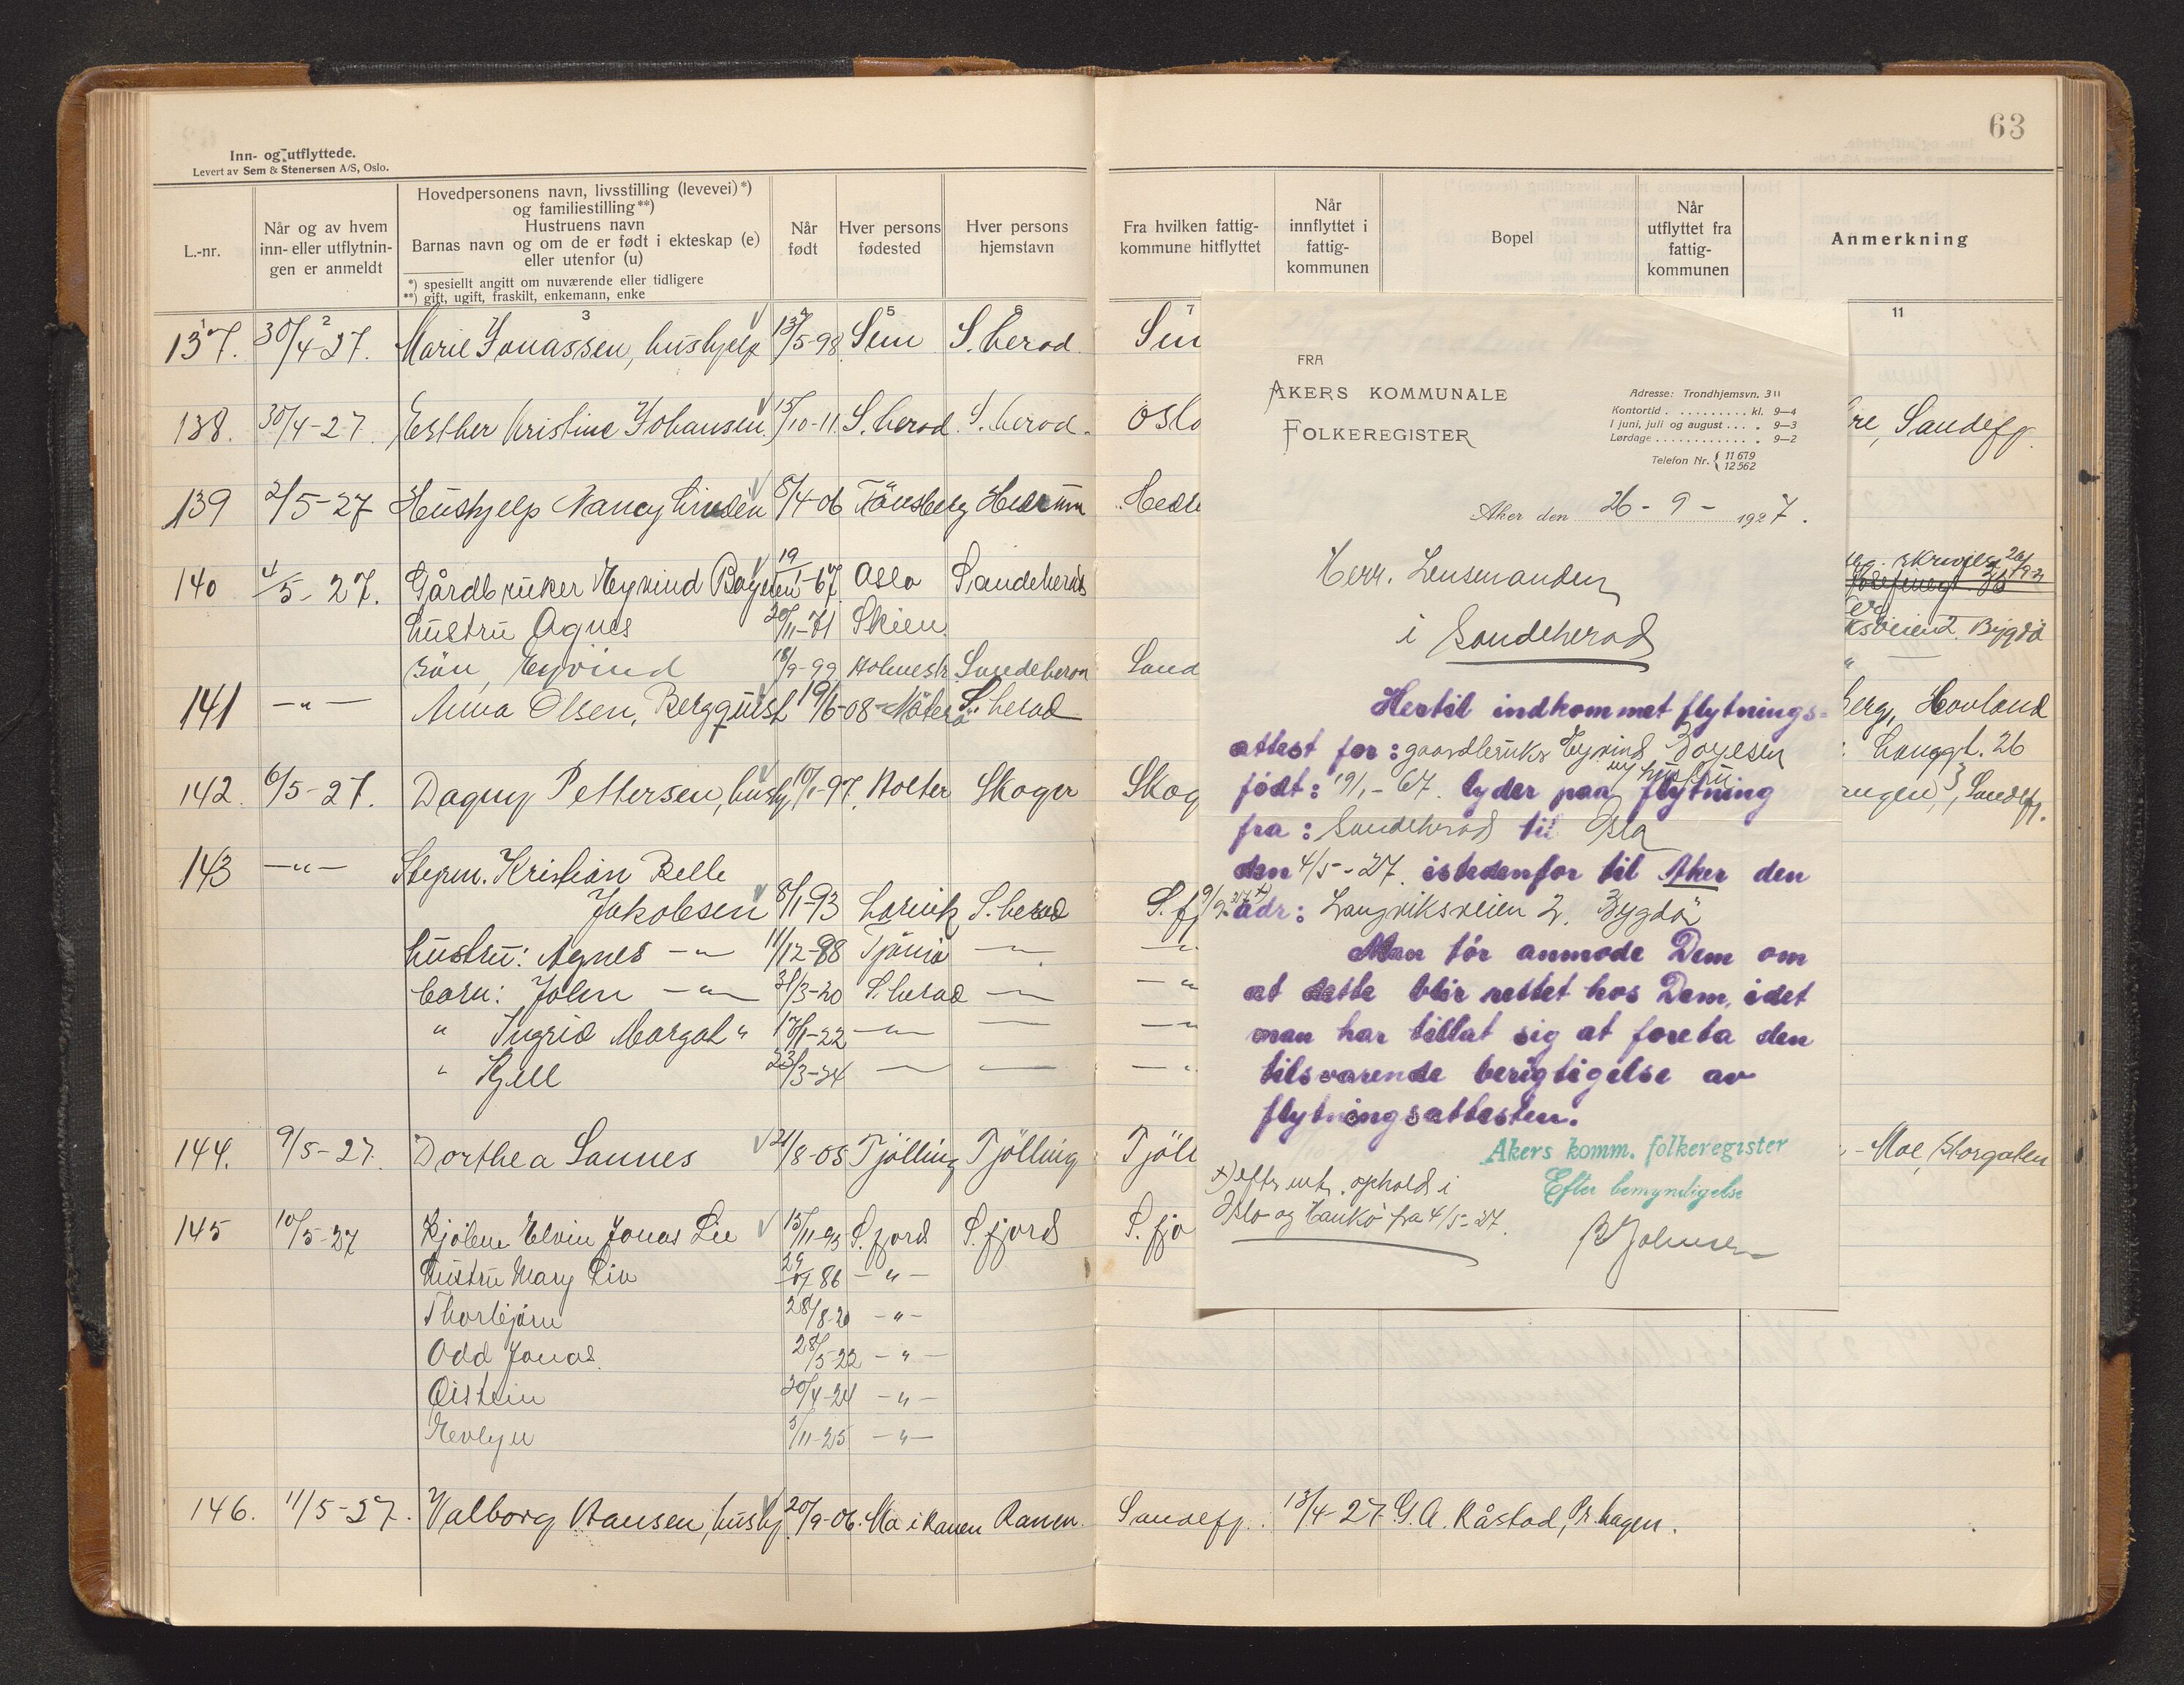 63
Inn- og utflyttede.
Levert av Sem & Stenersen A/S, Oslo.
L.-nr.
Når og av hvem
inn- eller utflytnin-
gen er anmeldt
Hovedpersonens navn, livsstilling (levevei)*)
og familiestilling**)
Hustruens navn
Barnas navn og om de er født i ekteskap (e)
eller utenfor (u)
*) spesiellt angitt om nuværende eller tidligere
**) gift, ugift, fraskilt, enkemann, enke
Når
født
Hver persons
fødested
Hver persons
hjemstavn
Fra hvilken fattig-
kommune hitflyttet
Når
innflyttet i
fattig-
kommunen
Bopel
Når
utflyttet fra
fattig-
kommunen
Anmerkning
2 3 5 7 11
137. 30/4-27. Marie Jonassen, hushjelp 13/5-98 Sem S. herad.
138. 30/4-27. Esther Kristine Johansen 15/10-11 S. herad. S. herad. Oslo re, Sandefj.
139 2/5-27 Hushjelp Nancy Lindén 8/4-06 Tönsberg Hedrum Hedr
140 4/5-27. Gårdbruker Eyvind Boyesen 19/1-67. Oslo Sandeherad
hustru Agnes 20/11-71 Skien Bygdö
sön, Eyvind 18/9-99 Holmestr. Sandeherad Sand
141 -"- Anna Olsen, Bergquist 19/6-08 Nøterö S. herad berg, Hovland
Langgt. 26
142. 6/5-27. Dagny Pettersen, hushj. 10/1-97. Holter Skoger Skog angen, Sandefj.
143 -"- Styrm. Kristian Belle
Jakobsen 8/1-93 Larvik S. herad S. fj
hustru: Agnes -"- 11/12-88 Tjömö -"- -"-
barn: John -"- 31/3-20 S. herad -"- -"-
" Ingrid Margot " 17/1-22 -"- -"- -"-
" Kjell 23/3-24 -"- -"- -"-
144. 9/5-27. Dorthea Sannes 21/8-05 Tjölling Tjölling Tjöll - Moe, Storgaten
145 10/5-27 Kjølene Elvin Jonas Lie 15/11-93 S. fjord S. fjord S. fjo
Hustru Mary Lie 86 -"-
Thorbjörn 28/8-20 -"-
Odd Jonas. 28/5-22 -"-
Öistein 20/4-24 -"-
Evelyn 5/11-25 -"-
146. 11/5-27. Valborg Hansen, hushj. 20/9-06. Mo i Ranen Ranen. Sandefj. 13/4-27. G. A. Råstad, Pr. hagen.
FRA
AKERS KOMMUNALE
FOLKEREGISTER
Adresse: Trondhjemsvn. 3 II
Kontortid . . . . . . . . . . kl. 9—4
I juni, juli og august . . . . „ 9—3
Lørdage . . . . . . . . . . . . „ 9—2
Telefon Nr. { 11 679
12 562
Aker den 26 - 9 - 1927.
Herr. Lensmanden
i Sandeherad
Hertil indkommet flytnings-
attest for: gaardbruker Eyvind Boyesen
m/ hustru
født: 19/1-67. lyder paa flytning
fra: Sandeherad til Oslo
den 4/5-27. istedenfor til Aker den
9/9-27 x) adr: Langviksveien 2. Bygdö
Man tør anmode Dem om
at dette blir rettet hos Dem, idet
man har tillat sig at foreta den
tilsvarende berigtigelse av
flytningsattesten.
Akers komm. folkeregister
Efter bemyndigelse
B Johnsen
x) efter mt. ophold i
Oslo og Hankö fra 4/5-27.